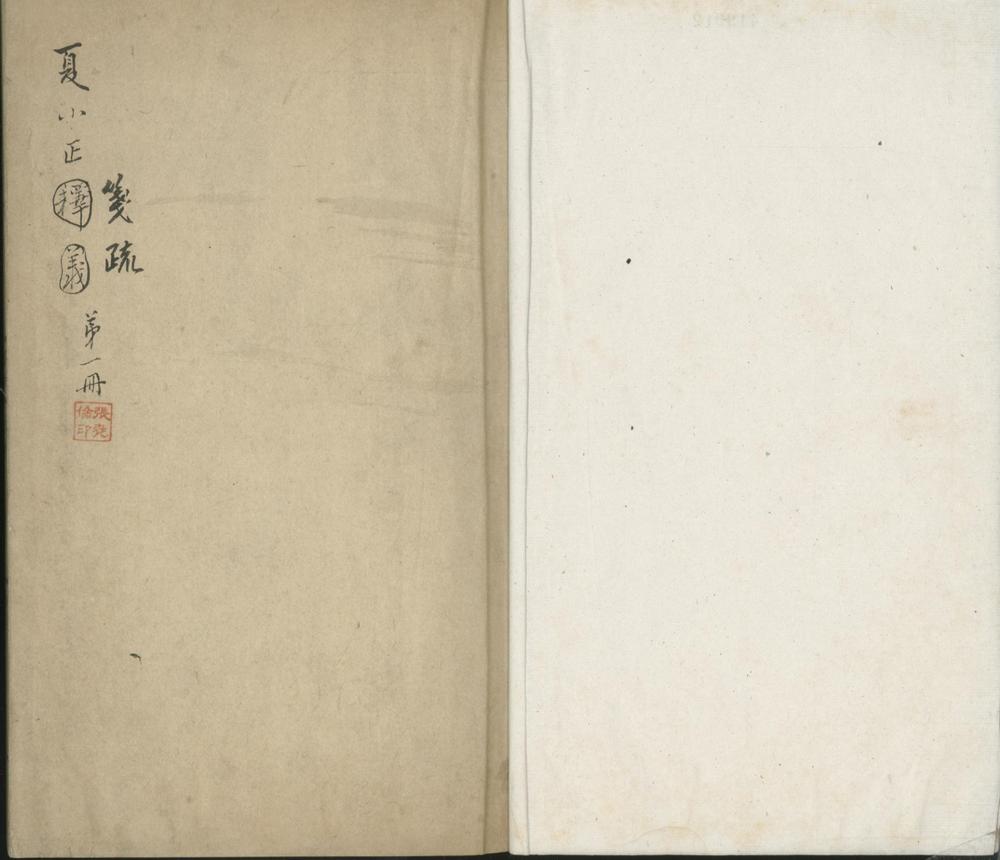 夏小正釋義
箋疏
第一冊
張堯倫印